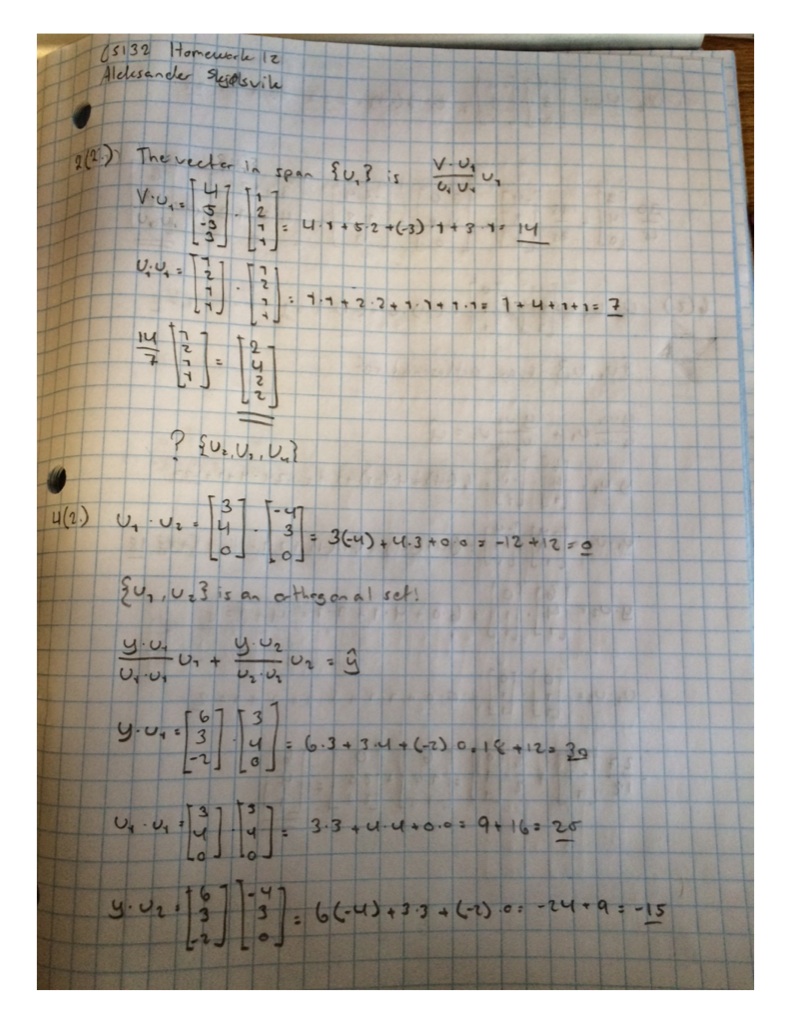 CS132 Homework 12
Aleksander Skjølsvik
2(2.) The vector in span {u₁} is (v·u₁)/(u₁·u₁) u₁
v·u₁ = [4 5 -3 3] · [1 2 1 1] = 4·1+5·2+(-3)·1+3·1= 14
u₁·u₁ = [1 2 1 1] · [1 2 1 1] = 1·1+2·2+1·1+1·1= 1+4+1+1= 7
14/7 [1 2 1 1] = [2 4 2 2]
? {u₂, u₃, u₄}
4(2.) u₁ · u₂ = [3 4 0] · [-4 3 0] = 3(-4)+4·3+0·0= -12+12= 0
{u₁, u₂} is an orthogonal set!
(y·u₁)/(u₁·u₁) u₁ + (y·u₂)/(u₂·u₂) u₂ = ŷ
y·u₁ = [6 3 -2] · [3 4 0] = 6·3+3·4+(-2)·0=18+12= 30
u₁·u₁ = [3 4 0] · [3 4 0] = 3·3+4·4+0·0= 9+16= 25
y·u₂ = [6 3 -2] [-4 3 0] = 6(-4)+3·3+(-2)·0= -24+9= -15